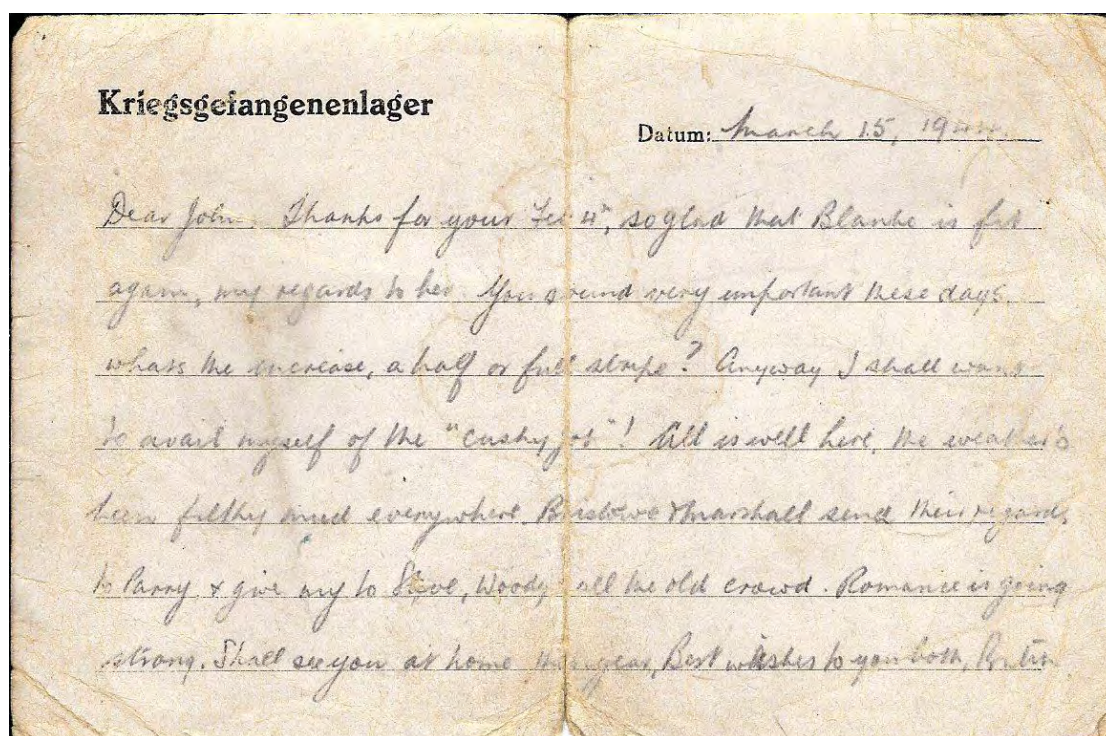 Kriegsgefangenenlager
Datum: March 15, 1944.
Dear John. Thanks for your Feb 4th, so glad that Blanche is fit
again, my regards to her. You sound very important these days.
whats the increase, a half or full stripe? Anyway I shall want
to avail myself of the "cushy job"! All is well here, the weather's
been filthy mud everywhere. Bristowe & Marshall send their regards
to Parry & give my to Steve, Woody all the old crowd. Romance is going
strong. Shall see you at home this year, Best wishes to you both,